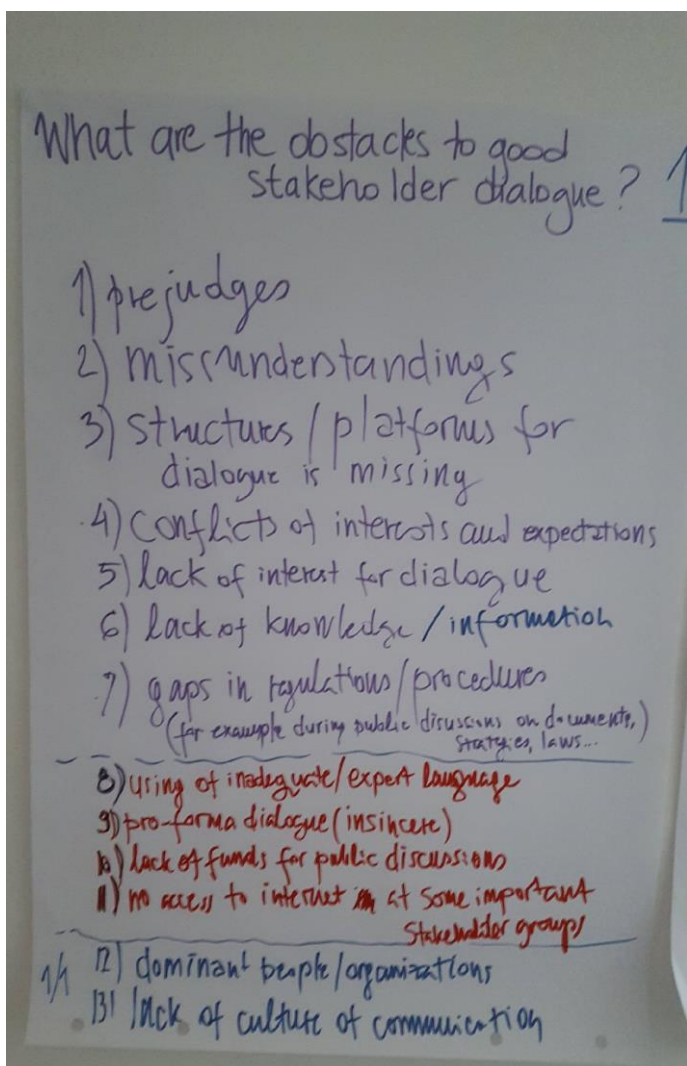 What are the obstacks to good
stakeholder dialogue? 1
1) prejudges
2) missunderstandings
3) structures/platforms for
dialogue is missing
4) conflicts of interests and expectations
5) lack of interest for dialogue
6) lack of knowledge/information
7) gaps in regulations/procedures
(for example during public discussions on documents,)
stratgies, laws...
8) using of inadequate/expert language
9) pro-forma dialogue (insincere)
10) lack of funds for public discussions
11) no access to internet at some important
stakeholder groups
1/1 12) dominant people/organizations
13) lack of culture of communication